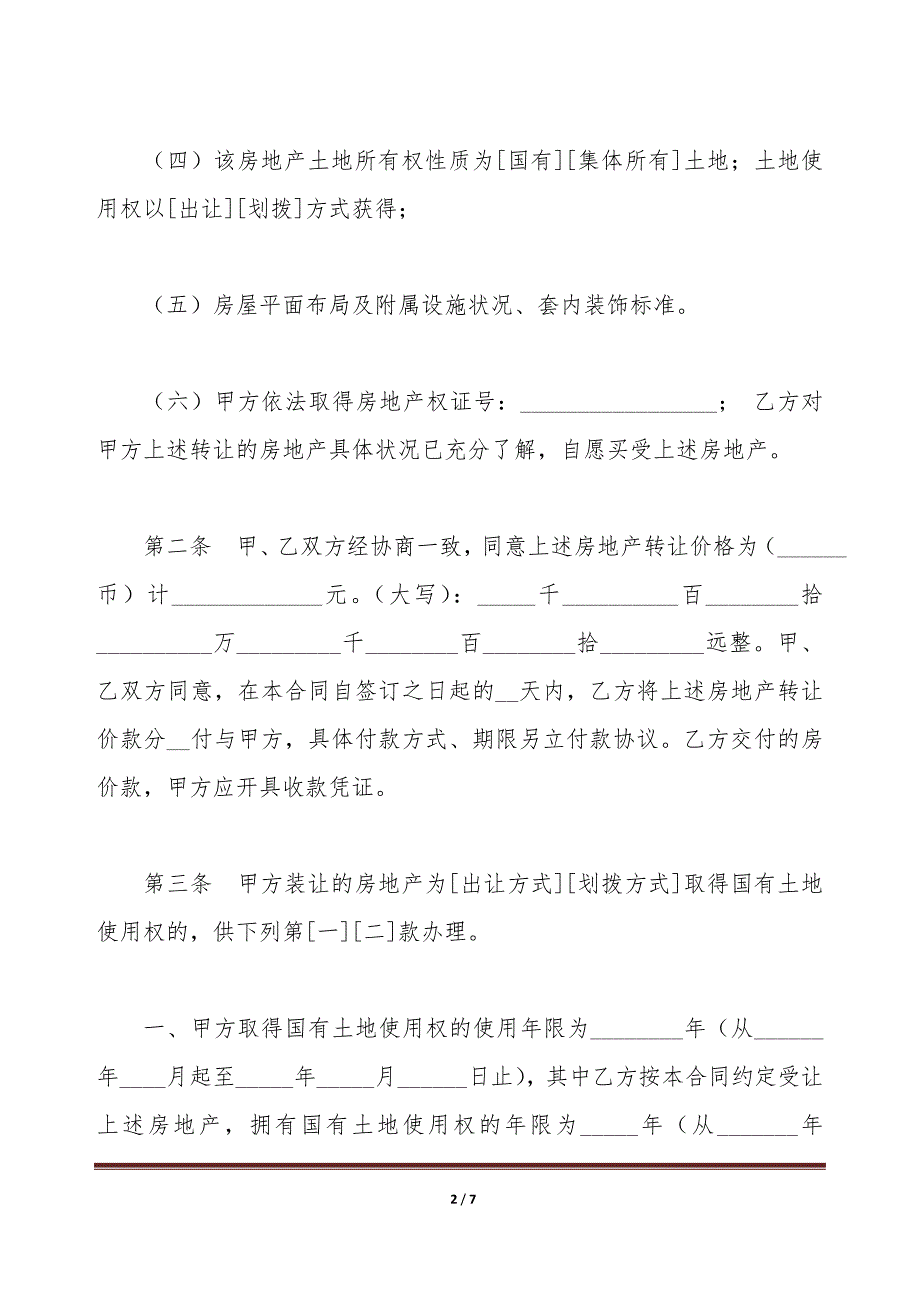 （四）该房地产土地所有权性质为[国有][集体所有]土地；土地使
用权以[出让][划拨]方式获得；
（五）房屋平面布局及附属设施状况、套内装饰标准。
（六）甲方依法取得房地产权证号：_________________； 乙方对
甲方上述转让的房地产具体状况已充分了解，自愿买受上述房地产。
第二条　甲、乙双方经协商一致，同意上述房地产转让价格为（______
币）计_____________元。（大写）：_____千__________百________拾
__________万_________千________百________拾_________远整。甲、
乙双方同意，在本合同自签订之日起的__天内，乙方将上述房地产转让
价款分__付与甲方，具体付款方式、期限另立付款协议。乙方交付的房
价款，甲方应开具收款凭证。
第三条　甲方装让的房地产为[出让方式][划拨方式]取得国有土地
使用权的，供下列第[一][二]款办理。
一、甲方取得国有土地使用权的使用年限为________年（从______
年____月起至_____年_____月______日止），其中乙方按本合同约定受让
上述房地产，拥有国有土地使用权的年限为_____年（从_______年
2 / 7